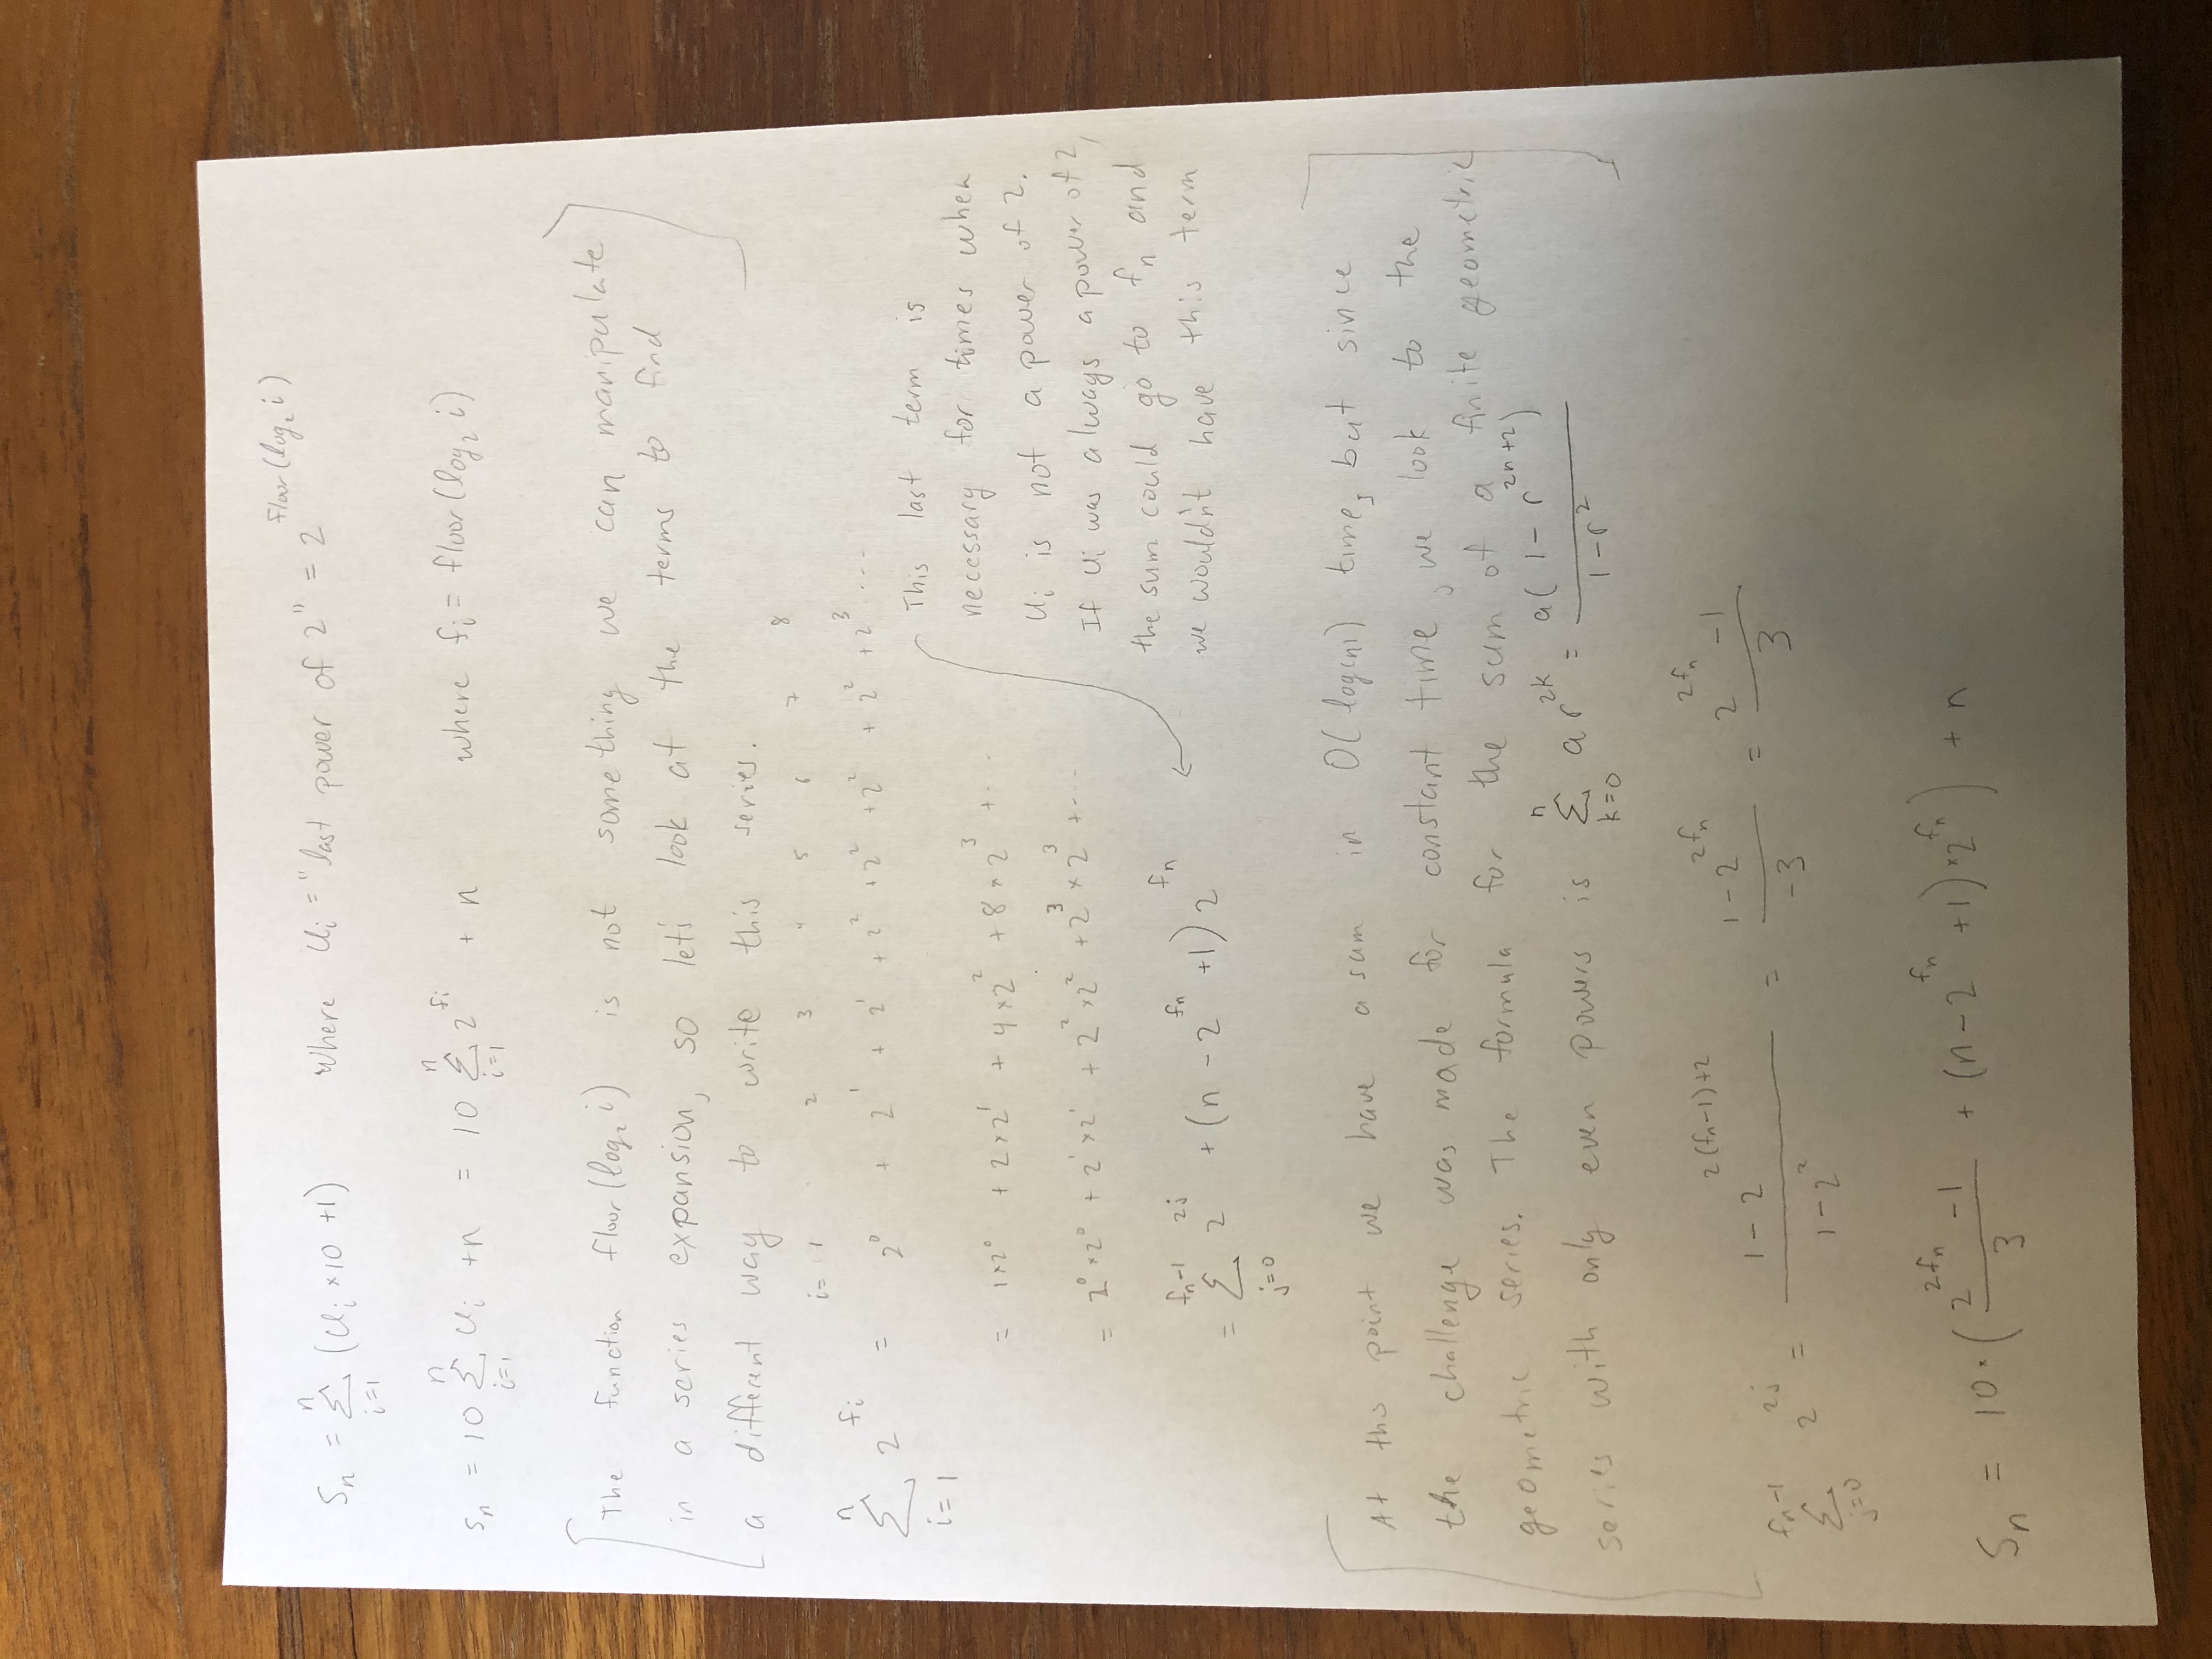 Sₙ = Σ_{i=1}^{n} (Uᵢ × 10 + 1) where Uᵢ = "last power of 2" = 2^{floor(log₂ i)}
Sₙ = 10 Σ_{i=1}^{n} Uᵢ + n = 10 Σ_{i=1}^{n} 2^{fᵢ} + n where fᵢ = floor(log₂ i)
The function floor(log₂ i) is not something we can manipulate
in a series expansion, so let's look at the terms to find
a different way to write this series.
i= 1 2 3 4 5 6 7 8
Σ_{i=1}^{n} 2^{fᵢ} = 2^0 + 2^1 + 2^1 + 2^2 + 2^2 + 2^2 + 2^2 + 2^3 ...
= 1×2^0 + 2×2^1 + 4×2^2 + 8×2^3 + ...
= 2^0×2^0 + 2^1×2^1 + 2^2×2^2 + 2^3×2^3 + ...
= Σ_{j=0}^{fₙ-1} 2^{2j} + (n - 2^{fₙ} + 1) 2^{fₙ}
This last term is
necessary for times when
Uᵢ is not a power of 2.
If Uᵢ was always a power of 2,
the sum could go to fₙ and
we wouldn't have this term
At ths point we have a sum in O(log(n)) time, but since
the challenge was made for constant time, we look to the
geometric series. The formula for the sum of a finite geometric
series with only even powers is Σ_{k=0}^{n} a r^{2k} = a(1 - r^{2n+2}) / (1 - r^2)
Σ_{j=0}^{fₙ-1} 2^{2j} = (1 - 2^{2(fₙ-1)+2}) / (1 - 2^2) = (1 - 2^{2fₙ}) / -3 = (2^{2fₙ} - 1) / 3
Sₙ = 10 · ((2^{2fₙ} - 1) / 3 + (n - 2^{fₙ} + 1) × 2^{fₙ}) + n